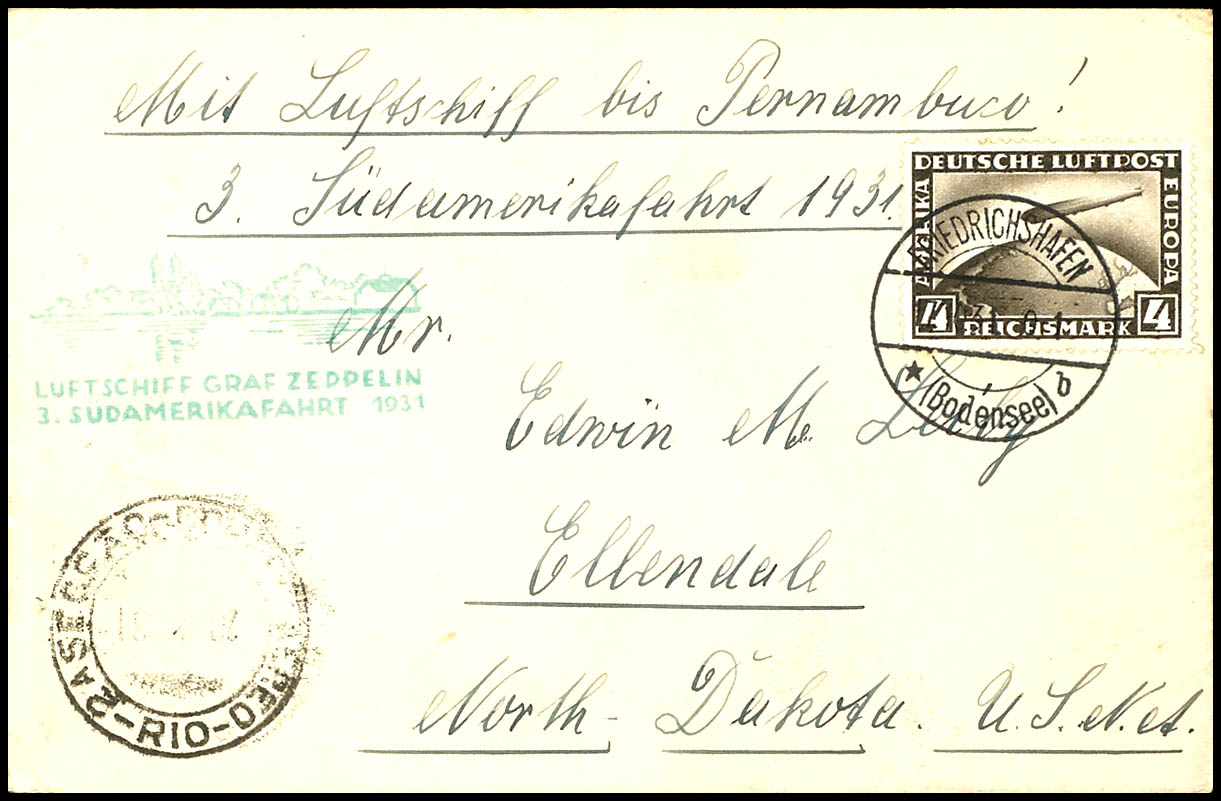 Mit Luftschiff bis Pernambuco!
3. Südamerikafahrt 1931.
DEUTSCHE LUFTPOST
AMERIKA
EUROPA
4 REICHSMARK 4
FRIEDRICHSHAFEN
(Bodensee) b
LUFTSCHIFF GRAF ZEPPELIN
3. SÜDAMERIKAFAHRT 1931
Mr.
Edwin M.
Ellendale
North-Dakota. U.S.N.A.
RIO-D